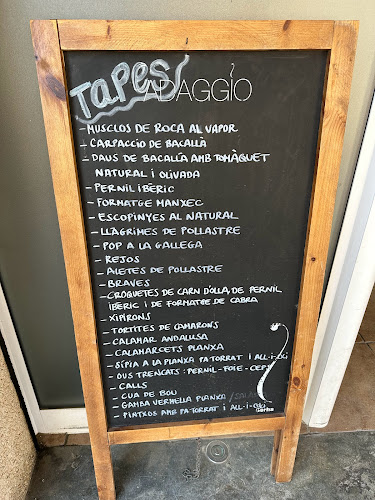 TAPES
ADAGGIO
- MUSCLOS DE ROCA AL VAPOR
- CARPACCIO DE BACALLÀ
- DAUS DE BACALLÀ AMB TOMÀQUET
NATURAL I OLIVADA
- PERNIL IBÈRIC
- FORMATGE MANXEC
- ESCOPINYES AL NATURAL
- LLÀGRIMES DE POLLASTRE
- POP A LA GALLEGA
- REJOS
- ALETES DE POLLASTRE
- BRAVES
- CROQUETES DE CARN D'OLLA, DE PERNIL
IBÈRIC I DE FORMATGE DE CABRA
- XIPIRONS
- TORTITES DE CAMARONS
- CALAMAR ANDALUSA
- CALAMARCETS PLANXA
- SÍPIA A LA PLANXA PA TORRAT I ALL-I-OLI
- OUS TRENCATS: PERNIL-FOIE-CEPS
- CALLS
- CUA DE BOU
- GAMBA VERMELLA PLANXA
- PINTXOS AMB PA TORRAT I ALL-I-OLI